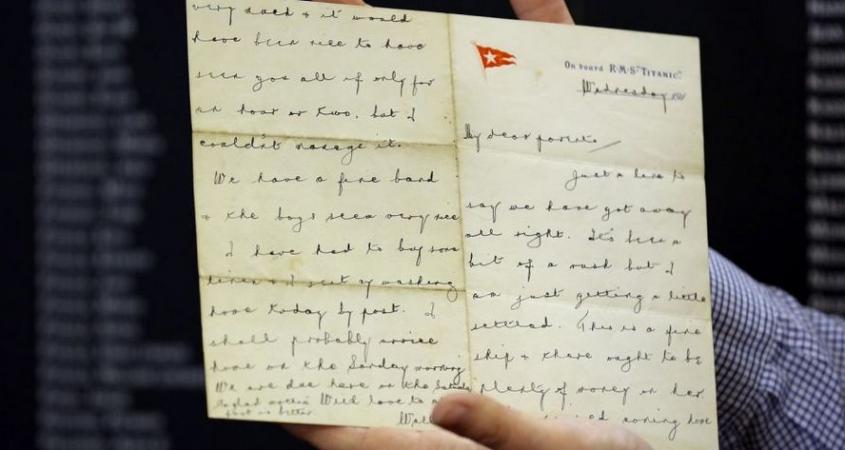 On board R.M.S "TITANIC."
Wednesday 191
My dear parents
Just a line to
say we have got away
all right. It's been a
bit of a rush but I
am just getting a little
settled. This is a fine
ship & there ought to be
plenty of money on her.
coming home
it would
have been nice to have
seen you all if only for
an hour or two, but I
couldn't manage it.
We have a fine band
& the boys seem very nice
I have had to buy some
linen & I sent my washing
home today by post. I
shall probably arrive
home on the Sunday morning
We are due here on the Saturday
glad mother's With love to
foot is better.